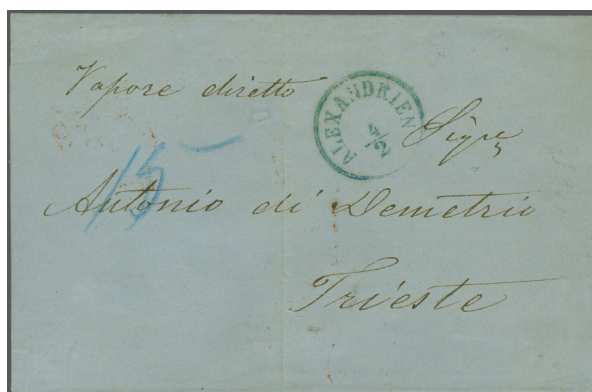 Vapore diretto
ALEXANDRIEN
4/2
Sigre
15
Antonio di Demetrio
Trieste